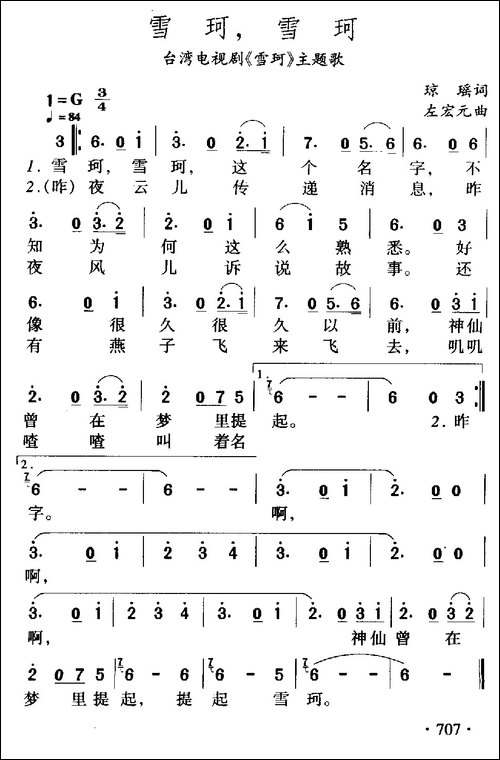 雪 珂, 雪 珂
台湾电视剧《雪珂》主题歌
1=G 3/4
♩=84
琼 瑶 词
左宏元 曲
3 ‖: 6· 0 i | 3· 0 2·i | 7· 0 5·6 | 6· 0 6 |
1.雪 珂, 雪 珂, 这 个 名 字, 不
2.(昨) 夜 云 儿 传 递 消 息, 昨
3· 0 3·2 | 2· 0 2 | 6 i 5 | 6· 0 3 |
知 为 何 这 么 熟 悉。 好
夜 风 儿 诉 说 故 事。 还
6· 0 i | 3· 0 2·i | 7· 0 5·6 | 6· 0 3i |
像 很 久 很 久 以 前, 神仙
有 燕 子 飞 来 飞 去, 叽叽
1.
2· 0 3·2 | 2 075 | 6 - - | 6 0 3 :‖
曾 在 梦 里提 起。 2.昨
喳 喳 叫 着名
2.
6 - - | 6 - - | 3· 0 i | 2· 0 7 |
字。 啊,
3· 0 i | 2 3 4 | 3· 0 i | 2· 0 |
啊,
3· 0 i | 2 3 4 | 3· 0 i | 2· 0 3i | 2· 0 32 |
啊, 神仙 曾 在
2 075 | 6 - 6 | 6 - 5 | 6 - - | 6 - - ‖
梦 里提 起, 提 起 雪 珂。
· 707 ·